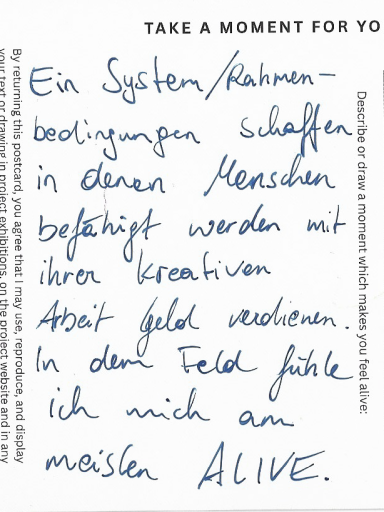 TAKE A MOMENT FOR YO
Ein System/Rahmen-
bedingungen schaffen
in denen Menschen
befähigt werden mit
ihrer kreativen
Arbeit Geld verdienen.
In dem Feld fühle
ich mich am
meisten ALIVE.
Describe or draw a moment which makes you feel alive:
By returning this postcard, you agree that I may use, reproduce, and display
your text or drawing in project exhibitions, on the project website and in any